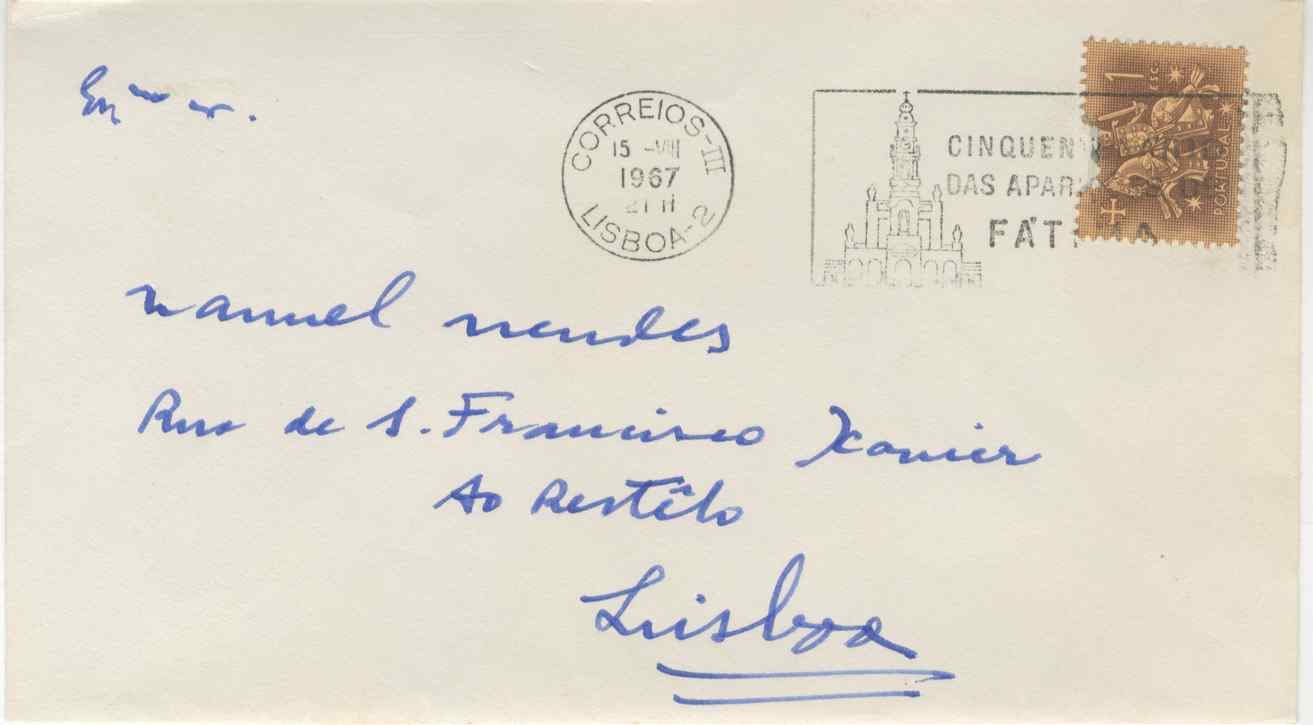 CORREIOS-III
15 -VIII
1967
21 H
LISBOA-2
CINQUEN
DAS APAR
FÁTIMA
1 ESC.
PORTUGAL
Manuel Mendes
Rua de S. Francisco Xavier
Ao Restêlo
Lisboa